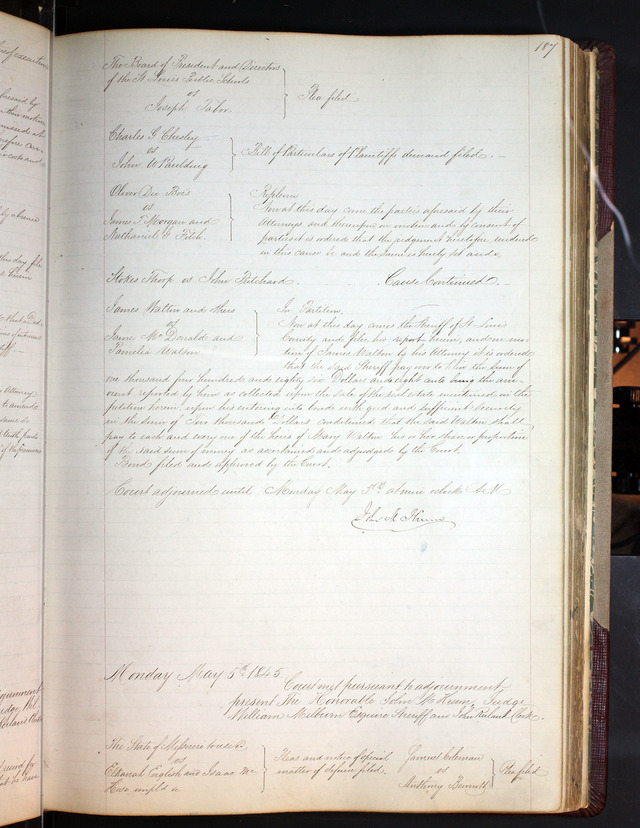 187
The Board of President and Directors
of the St Louis Public Schools
vs
Joseph Tabor
Plea filed
Charles G Chesley
vs
John W Paulding
Bill of Particulars of Plaintiffs demand filed.
Oliver Du Bois
vs
James T Morgan and
Nathaniel G Fitch.
Replevin
Now at this day come the parties aforesaid by their
Attorneys and thereupon on motion and by consent of
parties it is ordered that the judgment heretofore rendered
in this cause be and the same is hereby set aside.
Stokes Thorp vs John Pritchard. Cause Continued.
James Walton and others
vs
Jane McDonald and
Pamelia Walton
In Partition.
Now at this day comes the Sheriff of St Louis
County and files his report herein, and on mo-
tion of James Walton by his Attorney it is ordered
that the said Sheriff pay over to him the sum of
one thousand four hundred and eighty six Dollars and eight cents being the am-
ount reported by him as collected upon the sale of the real estate mentioned in the
petition herein upon his entering into bonds with good and sufficient security
in the sum of Two thousand Dollars conditioned that the said Walton shall
pay to each and every one of the heirs of Mary Walton his or her share or proportion
of the said sum of money as ascertained and adjudged by the Court.
Bond filed and approved by the Court.
Court adjourned until Monday May 5th at nine oclock A.M
John M Krum
Monday May 5th 1845
Court met pursuant to adjournment,
present The Honorable John M Krum, Judge
William Milburn Esquire Sheriff and John Ruland Clerk.
The State of Missouri to use &c
vs
Elkanah English and Isaac Mc
Hose impld &c
Pleas and notice of special
matter of defence filed.
Samuel Coleman
vs
Anthony Bennett
Plea filed